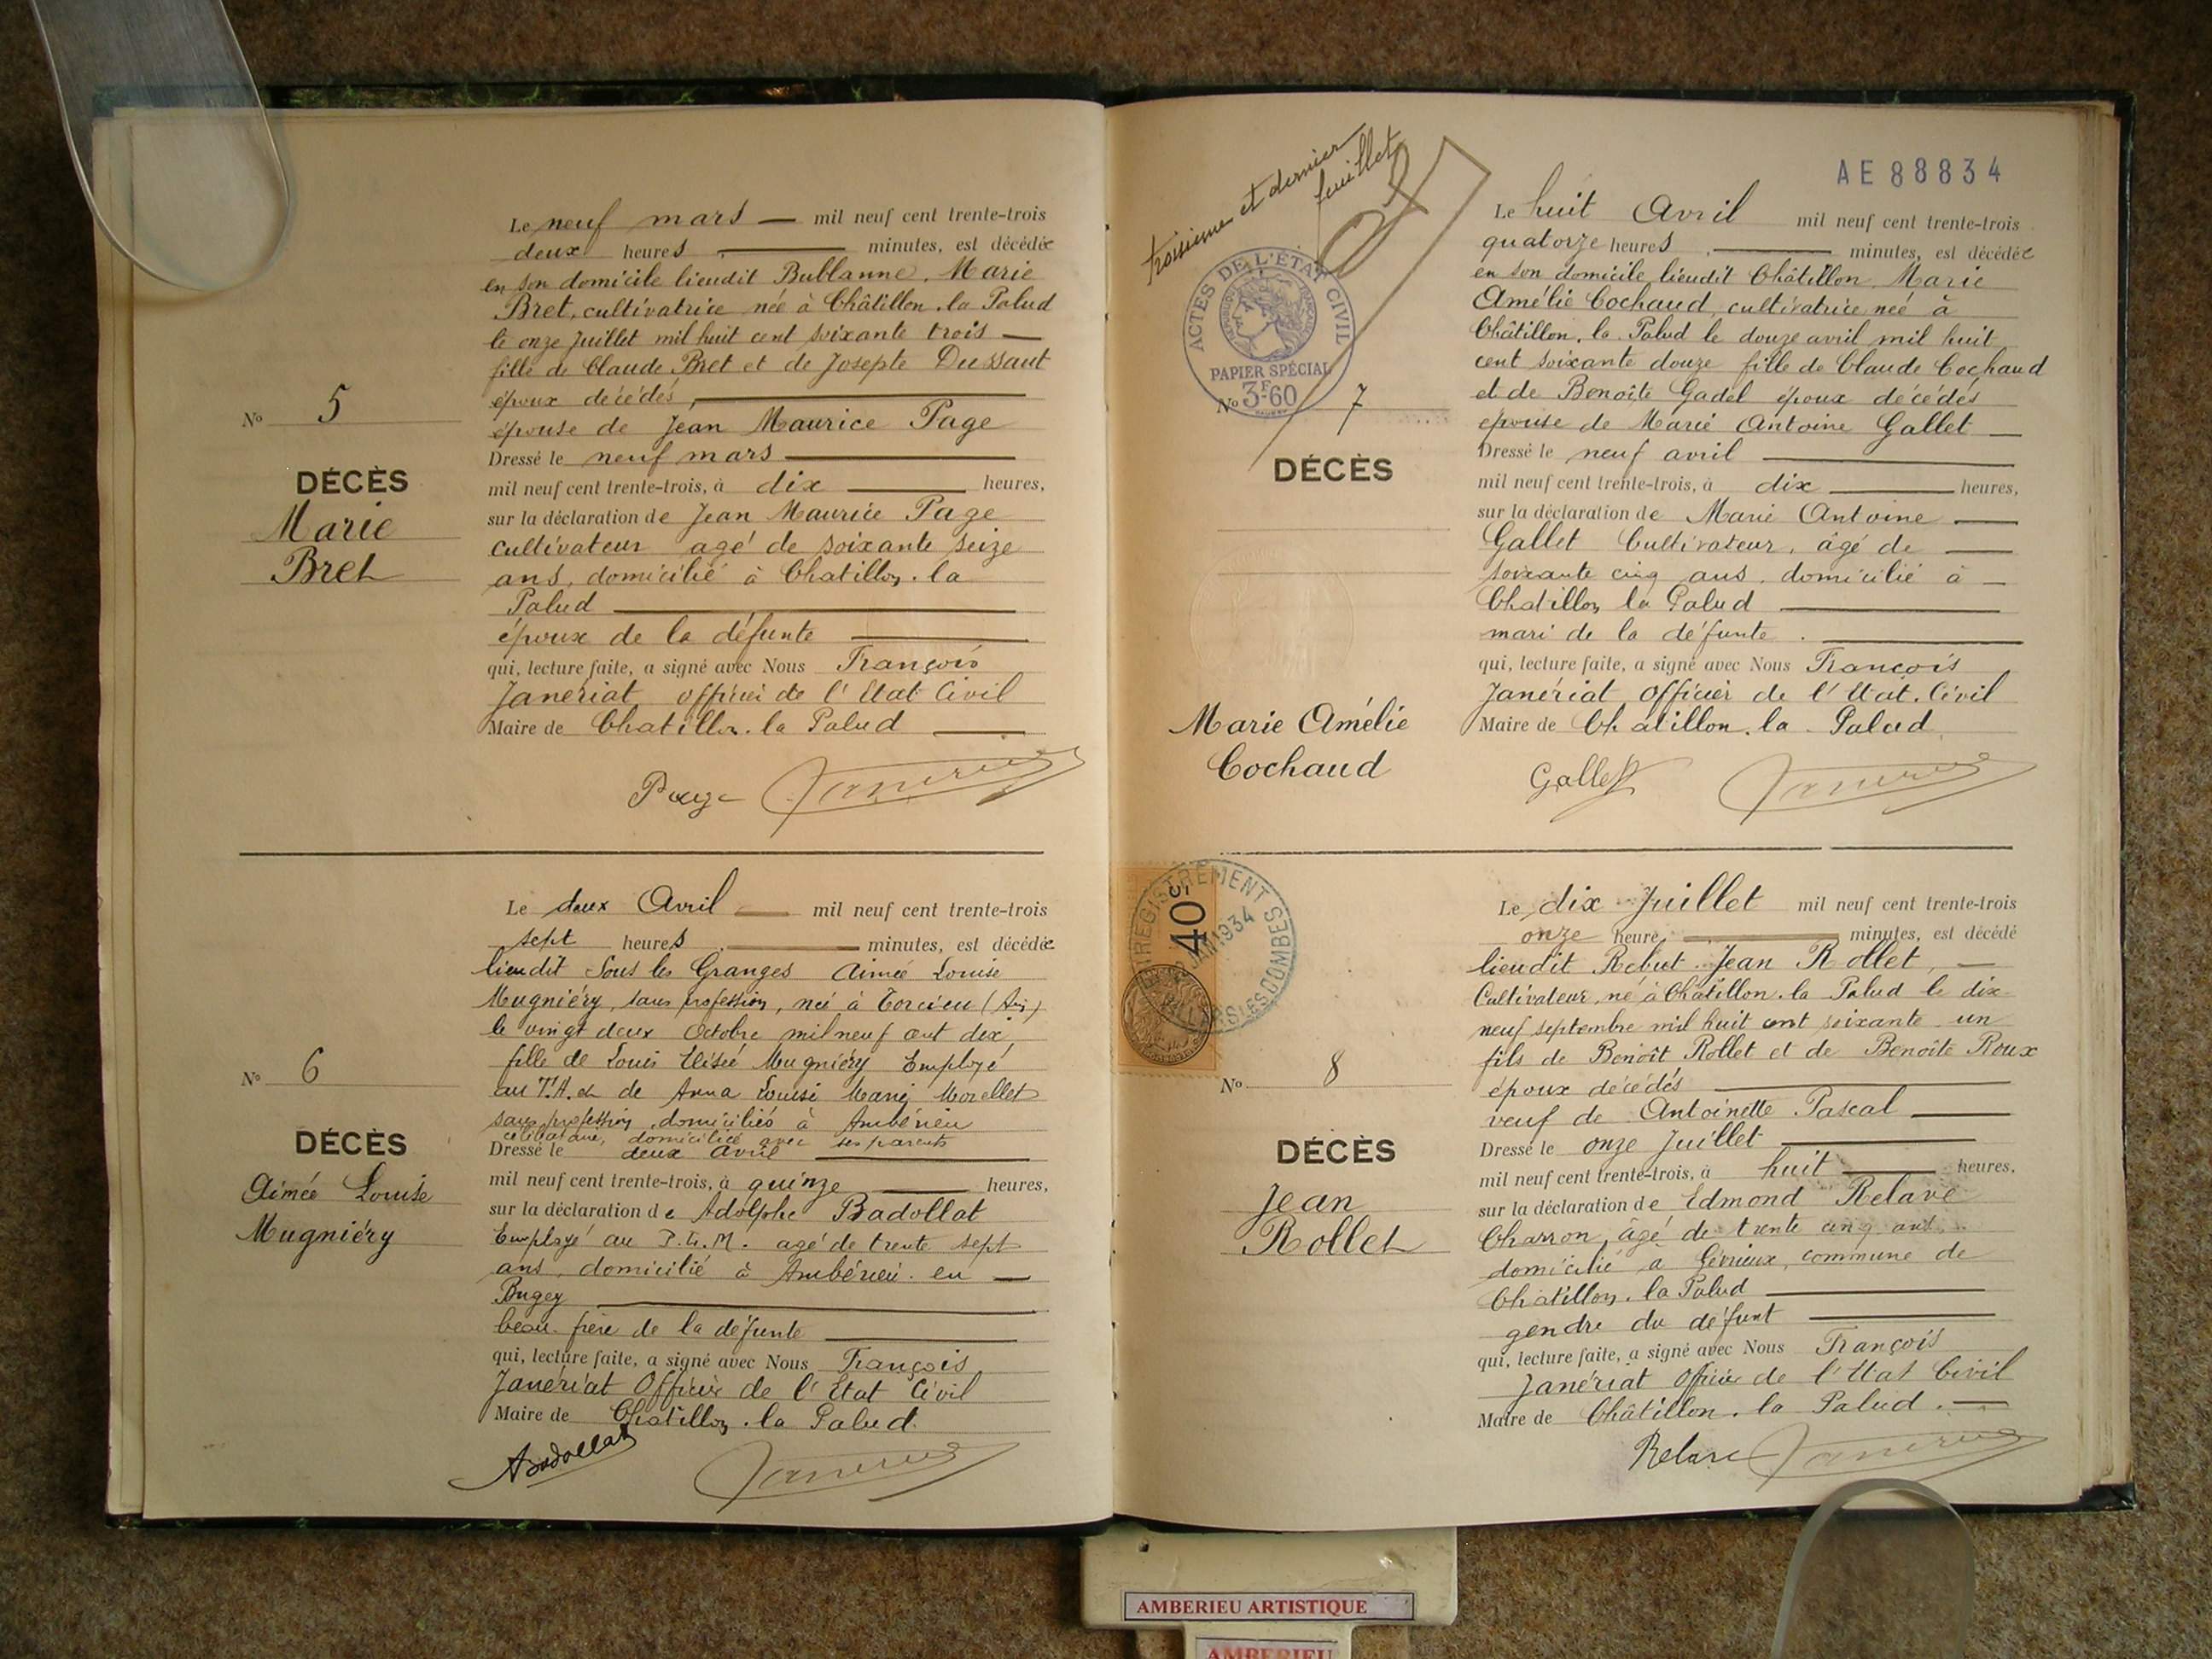 Le neuf mars — mil neuf cent trente-trois
deux heures — minutes, est décédée
en son domicile lieudit Bublanne, Marie
Bret, cultivatrice née à Châtillon. la Palud
le onze Juillet mil huit cent soixante trois —
fille de Claude Bret et de Josepte Dussaut
époux décédés, —
épouse de Jean Maurice Page
Dressé le neuf mars —
mil neuf cent trente-trois, à dix — heures,
sur la déclaration de Jean Maurice Page
cultivateur agé de soixante seize
ans, domicilié à Chatillon. la
Palud —
époux de la défunte —
qui, lecture faite, a signé avec Nous François
Janériat officier de l'Etat Civil
Maire de Chatillon. la Palud —
Page
No 5
DÉCÈS
Marie
Bret
Le deux Avril — mil neuf cent trente-trois
sept heures — minutes, est décédée
lieudit Sous les Granges Aimée Louise
Mugniéry, sans profession, née à Torcieu (Ain)
le vingt deux Octobre mil neuf cent dix,
fille de Louis Elisée Mugniéry Employé
au et de Anna Louise Marie Morellet
sans profession, domiciliés à Ambérieu
célibataire, domiciliée avec ses parents
Dressé le deux avril —
mil neuf cent trente-trois, à quinze — heures,
sur la déclaration de Adolphe Badollat
Employé au P.L.M. agé de trente sept
ans, domicilié à Ambérieu. en —
Bugey —
beau. frère de la défunte —
qui, lecture faite, a signé avec Nous François
Janériat Officier de l'Etat Civil
Maire de Chatillon. la Palud.
ABadollat
No 6
DÉCÈS
Aimée Louise
Mugniéry
troisième et dernier
feuillet
ACTES DE L'ÉTAT CIVIL
PAPIER SPÉCIAL
3F60
AE 88834
Le huit Avril mil neuf cent trente-trois
quatorze heures — minutes, est décédée
en son domicile lieudit Châtillon, Marie
Amélie Cochaud, cultivatrice née à
Châtillon. la Palud le douze avril mil huit
cent soixante douze fille de Claude Cochaud
et de Benoîte Gadel époux décédés
épouse de Marie Antoine Gallet —
Dressé le neuf avril —
mil neuf cent trente-trois, à dix — heures,
sur la déclaration de Marie Antoine —
Gallet Cultivateur, âgé de —
soixante cinq ans, domicilié à —
Chatillon la Palud —
mari de la défunte. —
qui, lecture faite, a signé avec Nous François
Janériat Officier de l'Etat. Civil
Maire de Chatillon. la. Palud.
Gallet
No 7
DÉCÈS
Marie Amélie
Cochaud
40c
1934
Le dix Juillet mil neuf cent trente-trois
onze heure, — minutes, est décédé
lieudit Rebut. Jean Rollet, —
Cultivateur, né à Châtillon. la Palud le dix
neuf septembre mil huit cent soixante un
fils de Benoît Rollet et de Benoîte Roux
époux décédés —
veuf de Antoinette Pascal —
Dressé le onze Juillet —
mil neuf cent trente-trois, à huit — heures,
sur la déclaration de Edmond Relave
Charron, âgé de trente cinq ans
domicilié à Gévrieux, commune de
Châtillon. la Palud —
gendre du défunt —
qui, lecture faite, a signé avec Nous François
Janériat Officier de l'Etat Civil
Maire de Châtillon. la Palud. —
Relave
No 8
DÉCÈS
Jean
Rollet
AMBERIEU ARTISTIQUE
AMBERIEU